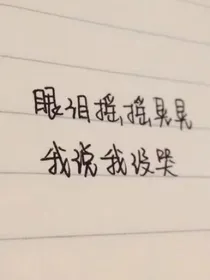 眼泪摇摇晃晃
我说我没哭